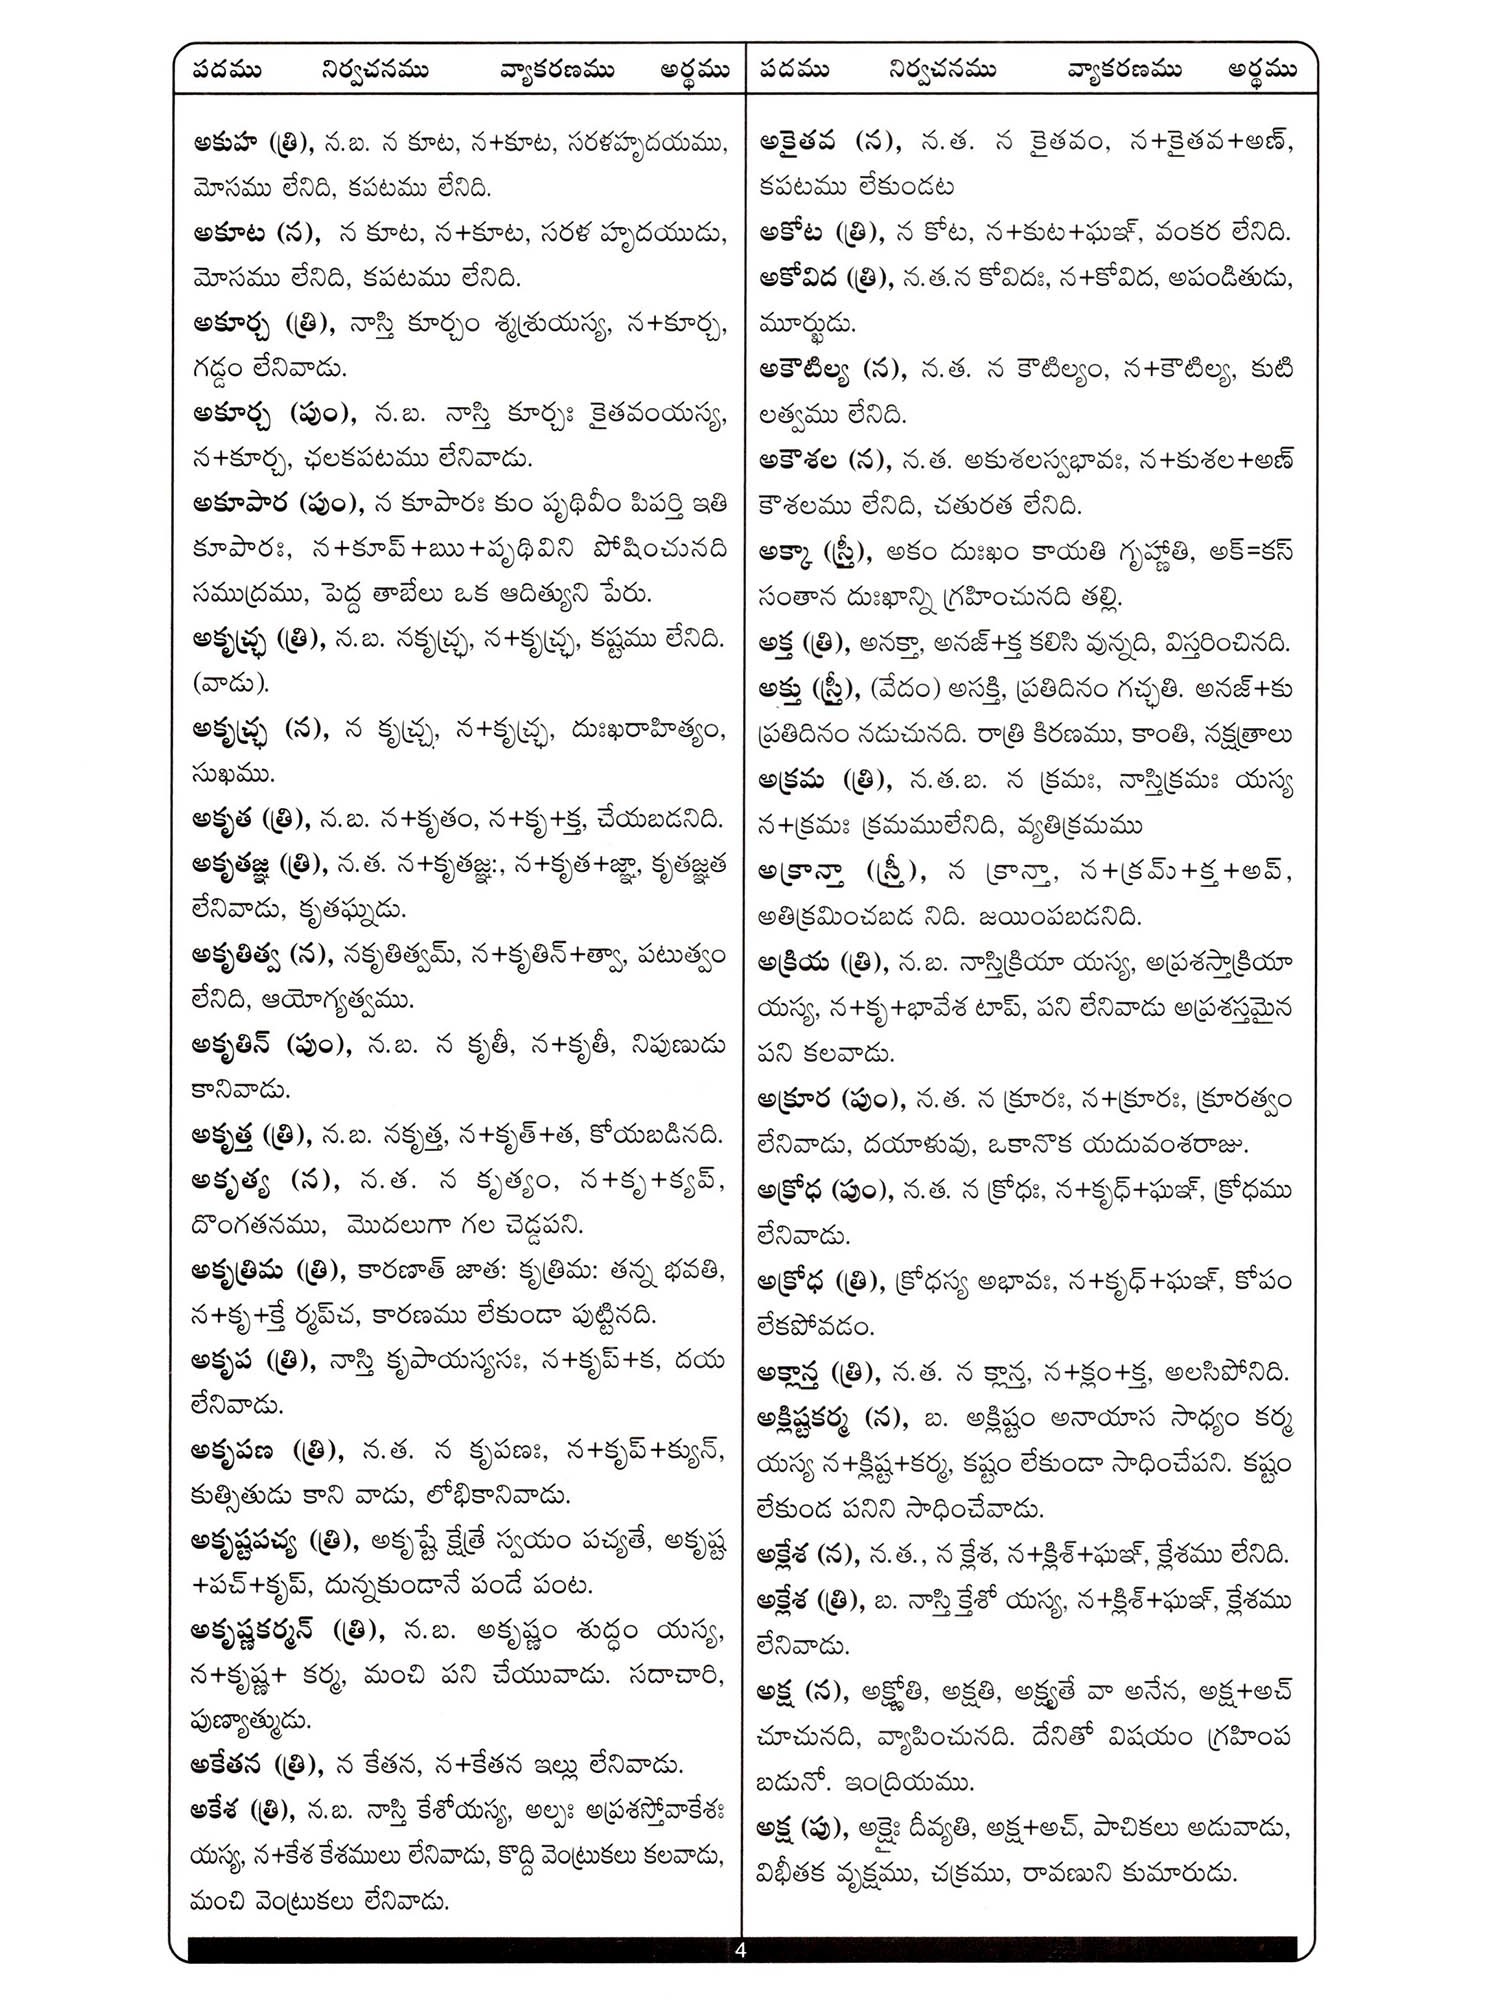 పదము నిర్వచనము వ్యాకరణము అర్థము
అకుహ (త్రి), న.బ. న కూట, న+కూట, సరళహృదయము,
మోసము లేనిది, కపటము లేనిది.
అకూట (న), న కూట, న+కూట, సరళ హృదయుడు,
మోసము లేనిది, కపటము లేనిది.
అకూర్చ (త్రి), నాస్తి కూర్చం శ్మశ్రుయస్య, న+కూర్చ,
గడ్డం లేనివాడు.
అకూర్చ (పుం), న.బ. నాస్తి కూర్చః కైతవంయస్య,
న+కూర్చ, ఛలకపటము లేనివాడు.
అకూపార (పుం), న కూపారః కుం పృథివీం పిపర్తి ఇతి
కూపారః, న+కూప్+ఋ+పృథివిని పోషించునది
సముద్రము, పెద్ద తాబేలు ఒక ఆదిత్యుని పేరు.
అకృచ్ఛ్ర (త్రి), న.బ. నకృచ్ఛ్ర, న+కృచ్ఛ్ర, కష్టము లేనిది.
(వాడు).
అకృచ్ఛ్ర (న), న కృచ్ఛ్ర, న+కృచ్ఛ్ర, దుఃఖరాహిత్యం,
సుఖము.
అకృత (త్రి), న.బ. న+కృతం, న+కృ+క్త, చేయబడనిది.
అకృతజ్ఞ (త్రి), న.త. న+కృతజ్ఞ:, న+కృత+జ్ఞా, కృతజ్ఞత
లేనివాడు, కృతఘ్నుడు.
అకృతిత్వ (న), నకృతిత్వమ్, న+కృతిన్+త్వా, పటుత్వం
లేనిది, ఆయోగ్యత్వము.
అకృతిన్ (పుం), న.బ. న కృతీ, న+కృతీ, నిపుణుడు
కానివాడు.
అకృత్త (త్రి), న.బ. నకృత్త, న+కృత్+త, కోయబడినది.
అకృత్య (న), న.త. న కృత్యం, న+కృ+క్యప్,
దొంగతనము, మొదలుగా గల చెడ్డపని.
అకృత్రిమ (త్రి), కారణాత్ జాత: కృత్రిమ: తన్న భవతి,
న+కృ+క్తే ర్మప్‌చ, కారణము లేకుండా పుట్టినది.
అకృప (త్రి), నాస్తి కృపాయస్యసః, న+కృప్+క, దయ
లేనివాడు.
అకృపణ (త్రి), న.త. న కృపణః, న+కృప్+క్యున్,
కుత్సితుడు కాని వాడు, లోభికానివాడు.
అకృష్టపచ్య (త్రి), అకృష్టే క్షేత్రే స్వయం పచ్యతే, అకృష్ట
+పచ్+కృప్, దున్నకుండానే పండే పంట.
అకృష్ణకర్మన్ (త్రి), న.బ. అకృష్ణం శుద్ధం యస్య,
న+కృష్ణ+ కర్మ, మంచి పని చేయువాడు. సదాచారి,
పుణ్యాత్ముడు.
అకేతన (త్రి), న కేతన, న+కేతన ఇల్లు లేనివాడు.
అకేశ (త్రి), న.బ. నాస్తి కేశోయస్య, అల్పః అప్రశస్తోవాకేశః
యస్య, న+కేశ కేశములు లేనివాడు, కొద్ది వెంట్రుకలు కలవాడు,
మంచి వెంట్రుకలు లేనివాడు.
పదము నిర్వచనము వ్యాకరణము అర్థము
అకైతవ (న), న.త. న కైతవం, న+కైతవ+అణ్,
కపటము లేకుండట
అకోట (త్రి), న కోట, న+కుట+ఘఞ్, వంకర లేనిది.
అకోవిద (త్రి), న.త.న కోవిదః, న+కోవిద, అపండితుడు,
మూర్ఖుడు.
అకౌటిల్య (న), న.త. న కౌటిల్యం, న+కౌటిల్య, కుటి
లత్వము లేనిది.
అకౌశల (న), న.త. అకుశలస్వభావః, న+కుశల+అణ్
కౌశలము లేనిది, చతురత లేనిది.
అక్కా (స్త్రీ), అకం దుఃఖం కాయతి గృహ్ణాతి, అక్=కస్
సంతాన దుఃఖాన్ని గ్రహించునది తల్లి.
అక్త (త్రి), అనక్తా, అనజ్+క్త కలిసి వున్నది, విస్తరించినది.
అక్తు (స్త్రీ), (వేదం) అసక్తి, ప్రతిదినం గచ్ఛతి. అనజ్+కు
ప్రతిదినం నడుచునది. రాత్రి కిరణము, కాంతి, నక్షత్రాలు
అక్రమ (త్రి), న.త.బ. న క్రమః, నాస్తిక్రమః యస్య
న+క్రమః క్రమములేనిది, వ్యతిక్రమము
అక్రాన్తా (స్త్రీ), న క్రాన్తా, న+క్రమ్+క్త+అప్,
అతిక్రమించబడ నిది. జయింపబడనిది.
అక్రియ (త్రి), న.బ. నాస్తిక్రియా యస్య, అప్రశస్తాక్రియా
యస్య, న+కృ+భావేశ టాప్, పని లేనివాడు అప్రశస్తమైన
పని కలవాడు.
అక్రూర (పుం), న.త. న క్రూరః, న+క్రూరః, క్రూరత్వం
లేనివాడు, దయాళువు, ఒకానొక యదువంశరాజు.
అక్రోధ (పుం), న.త. న క్రోధః, న+కృధ్+ఘఞ్, క్రోధము
లేనివాడు.
అక్రోధ (త్రి), క్రోధస్య అభావః, న+కృధ్+ఘఞ్, కోపం
లేకపోవడం.
అక్లాన్త (త్రి), న.త. న క్లాన్త, న+క్లం+క్త, అలసిపోనిది.
అక్లిష్టకర్మ (న), బ. అక్లిష్టం అనాయాస సాధ్యం కర్మ
యస్య న+క్లిష్ట+కర్మ, కష్టం లేకుండా సాధించేపని. కష్టం
లేకుండ పనిని సాధించేవాడు.
అక్లేశ (న), న.త., న క్లేశ, న+క్లిశ్+ఘఞ్, క్లేశము లేనిది.
అక్లేశ (త్రి), బ. నాస్తి క్తేశో యస్య, న+క్లిశ్+ఘఞ్, క్లేశము
లేనివాడు.
అక్ష (న), అక్ష్ణోతి, అక్షతి, అక్ష్యతే వా అనేన, అక్ష+అచ్
చూచునది, వ్యాపించునది. దేనితో విషయం గ్రహింప
బడునో. ఇంద్రియము.
అక్ష (పు), అక్షైః దీవ్యతి, అక్ష+అచ్, పాచికలు అడువాడు,
విభీతక వృక్షము, చక్రము, రావణుని కుమారుడు.
4